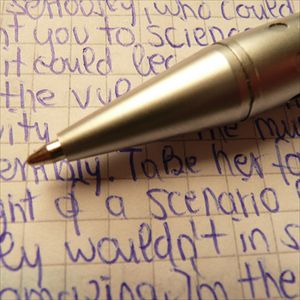 seriously, who could
nt you to science
it could bec
the vue
ity. the mu
embly. Take her fo
ght of a scenario
ey wouldn't in s
amazing. I'm the